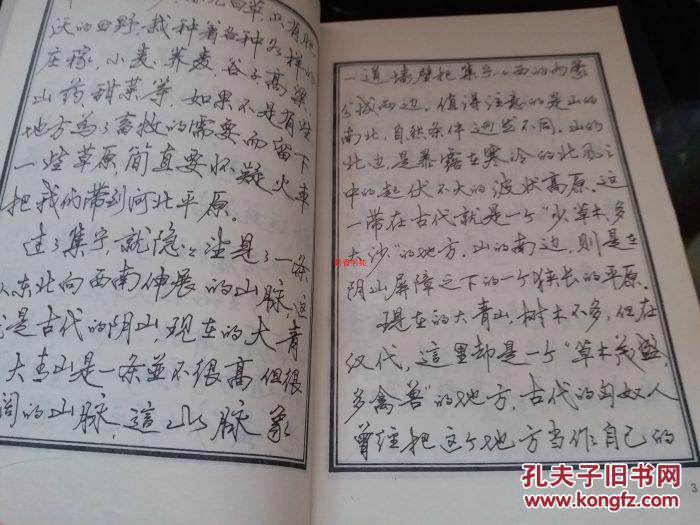 沃的田野，栽种着各种各样的
庄稼，小麦、荞麦、谷子、高粱、
山药、甜菜等，如果不是有些
地方为了畜牧的需要而留下
一些草原，简直要怀疑火车
把我们带到河北平原。
过了集宁，就隐隐望见了一条
从东北向西南伸展的山脉，这
就是古代的阴山，现在的大青
大青山是一条並不很高但很
阔的山脉，這山脉象
一道墙壁把集宁以西的内蒙
分成两边，值得注意的是山的
南北，自然条件迥然不同，山的
北边，是暴露在寒冷的北风之
中的起伏不大的波状高原，这
一带在古代就是一个“少草木，多
大沙”的地方，山的南边，则是在
阴山屏障之下的一个狭长的平原。
现在的大青山，树木不多，但在
汉代，這里却是一个“草木茂盛，
多禽兽”的地方，古代的匈奴人
曾经把这个地方当作自己的
3
孔夫子旧书网
www.kongfz.com